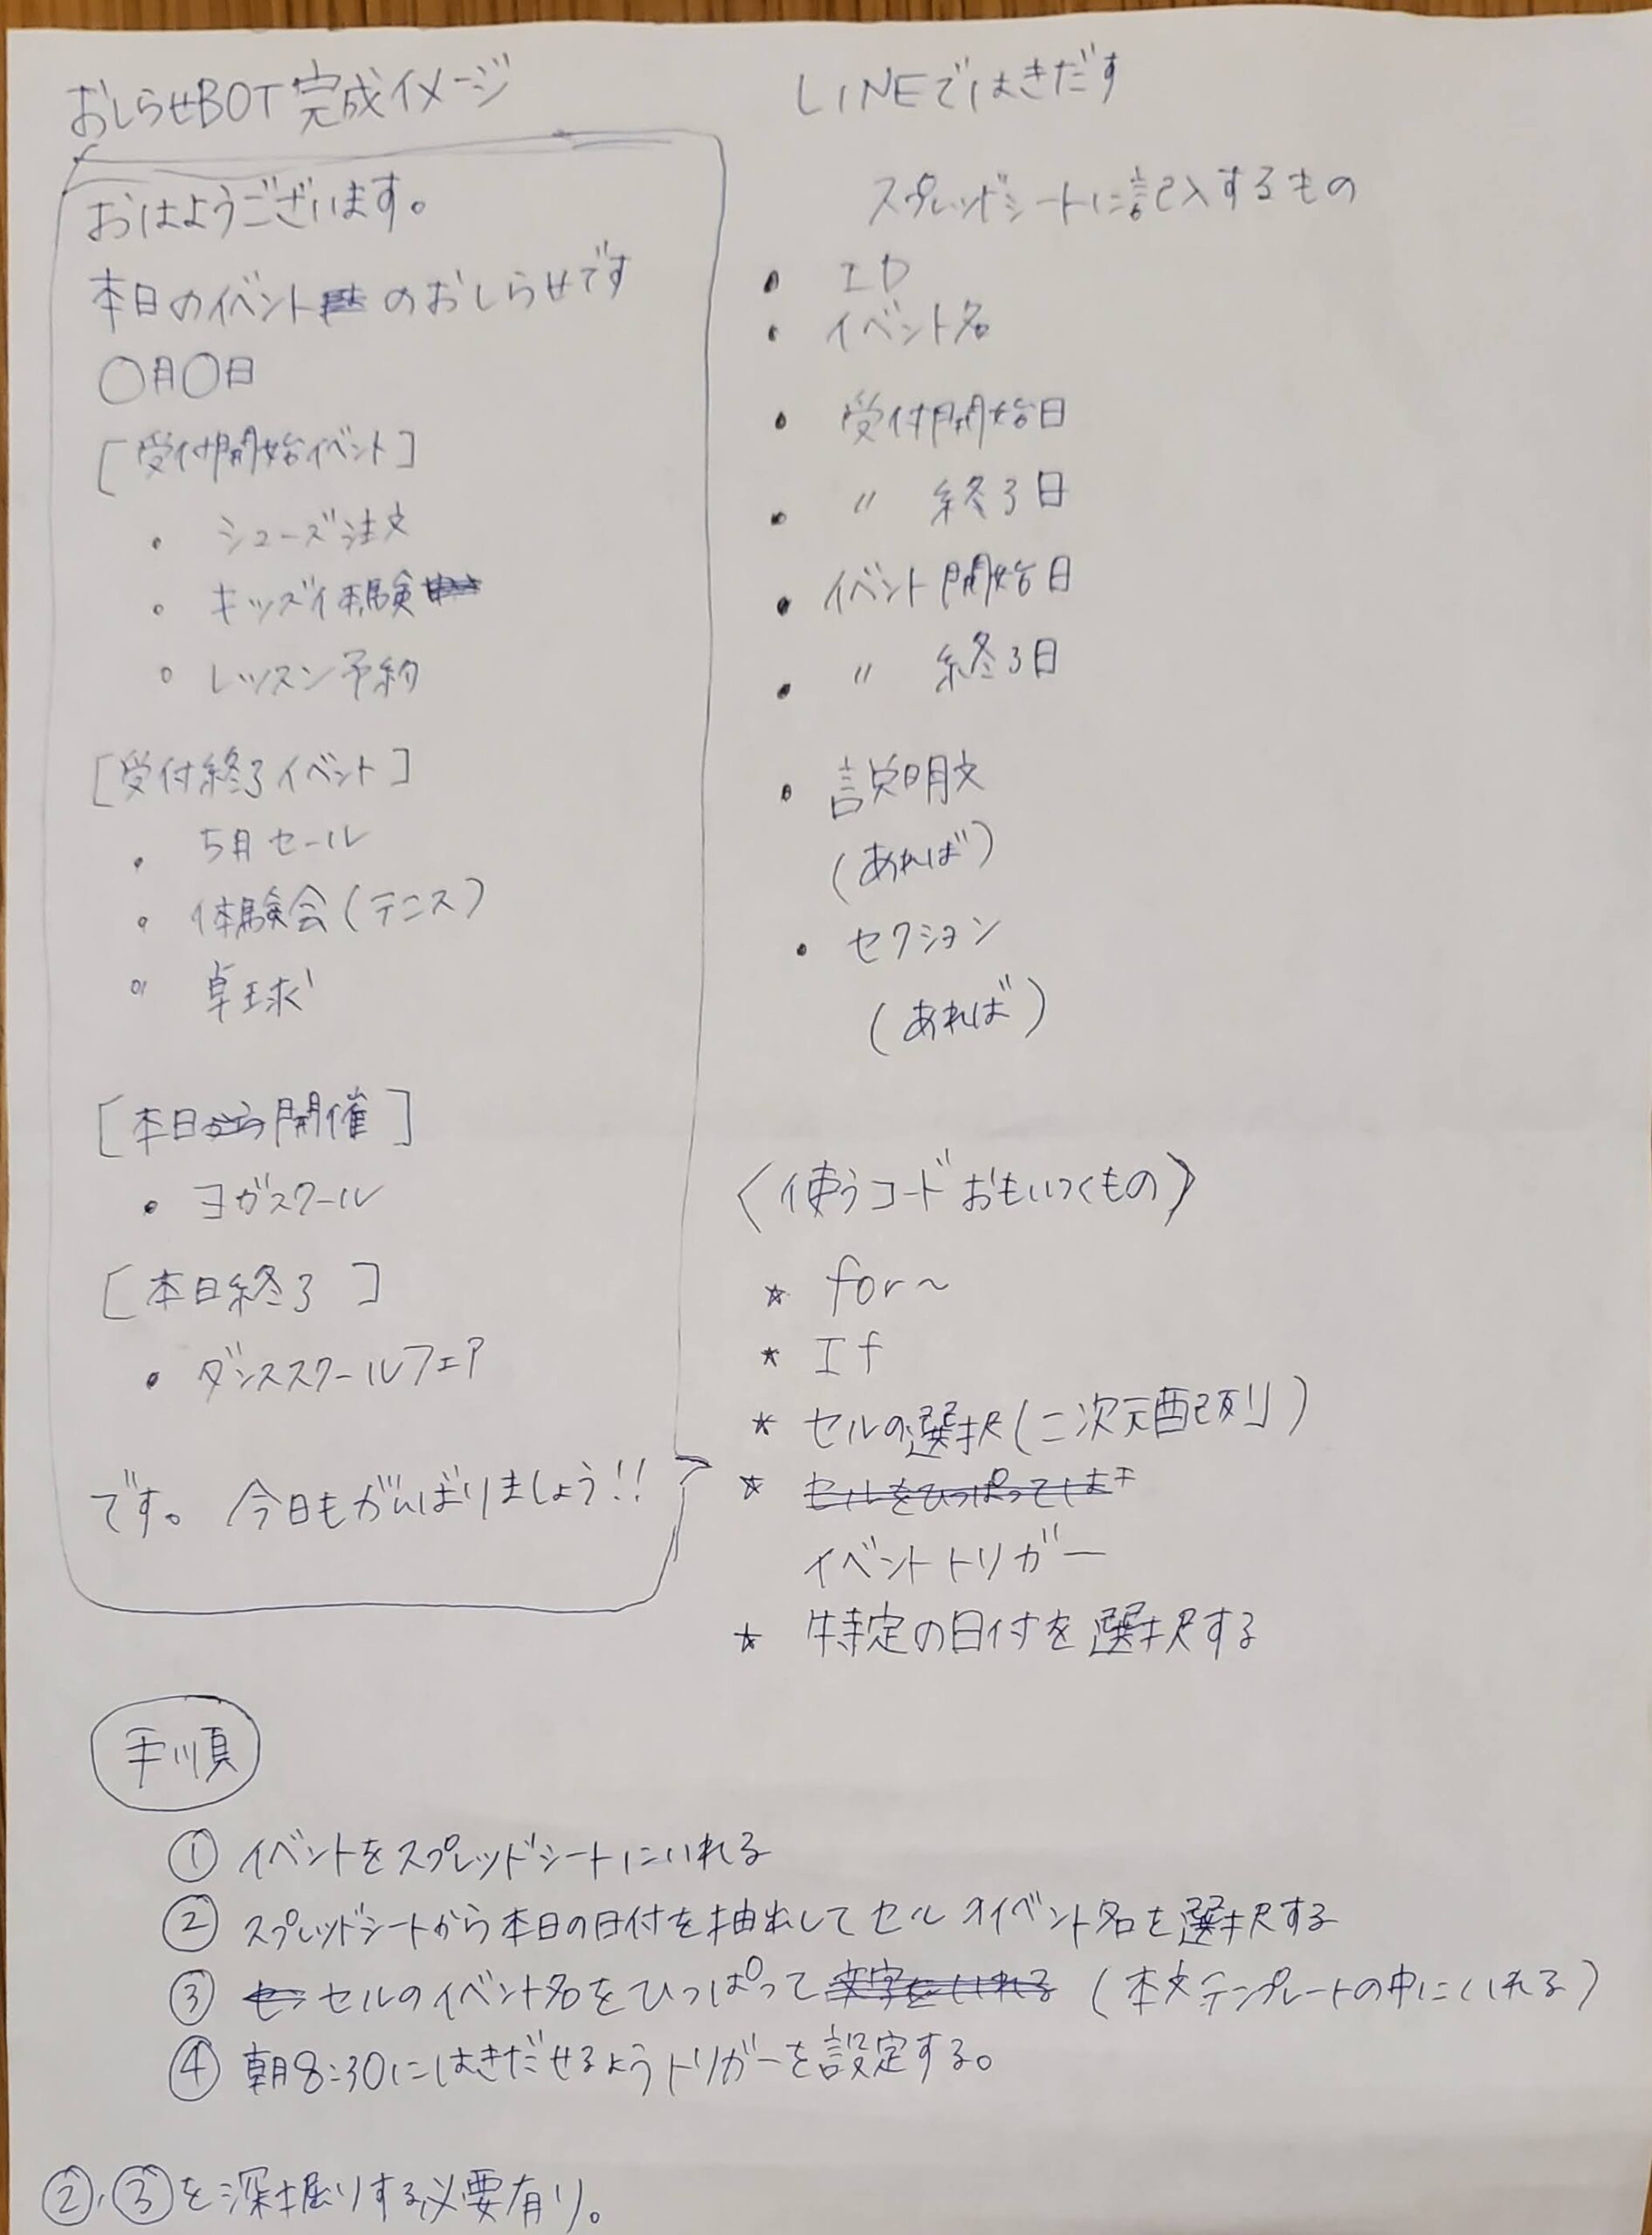 おしらせBOT完成イメージ
おはようございます。
本日のイベントのおしらせです
〇月〇日
[受付開始イベント]
・シューズ注文
・キッズ体験
・レッスン予約
[受付終了イベント]
・5月セール
・体験会(テニス)
・卓球
[本日開催]
・ヨガスクール
[本日終了]
・ダンススクールフェア
です。今日もがんばりましょう!!
LINEではきだす
スプレッドシートに記入するもの
・ID
・イベント名
・受付開始日
・〃 終了日
・イベント開始日
・〃 終了日
・説明文
(あれば)
・セクション
(あれば)
〈使うコードおもいつくもの〉
☆ for~
☆ If
☆ セルの選択(二次元配列)
☆ セルをひっぱってします
イベントトリガー
☆ 特定の日付を選択する
手順
① イベントをスプレッドシートにいれる
② スプレッドシートから本日の日付を抽出してセル イベント名を選択する
③ セルのイベント名をひっぱって文字をいれる(本文テンプレートの中にいれる)
④ 朝8:30にはきだせるようトリガーを設定する。
②、③を深堀りする必要有り。